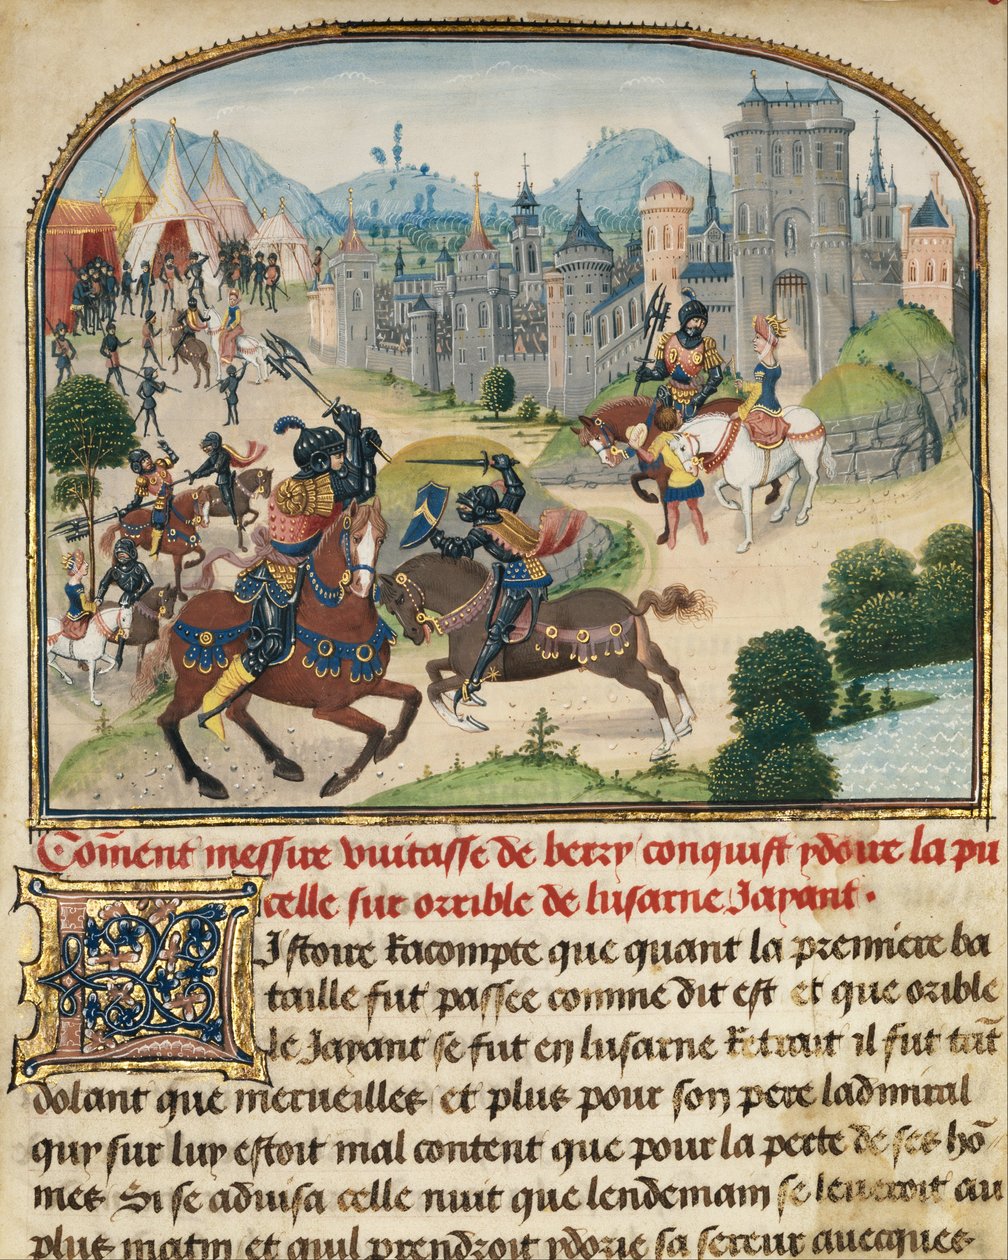 Com̃ent messire vuitasse de berry conquist ydorre la pu
celle sur orrible de lusarne Jayant.
Istoire Racompte que quant la premiere ba
taille fut passee comme dit est et que orible
le Jayant se fut en lusarne Retrait il fut tãt
dolant que merueilles et plus pour son pere ladmiral
quy sur luy estoit mal content que pour la perte de ses hõ
mes Si se aduisa celle nuit que lendemain se leueroit au
plus matin et quil prendroit ydorie sa sereur auecques